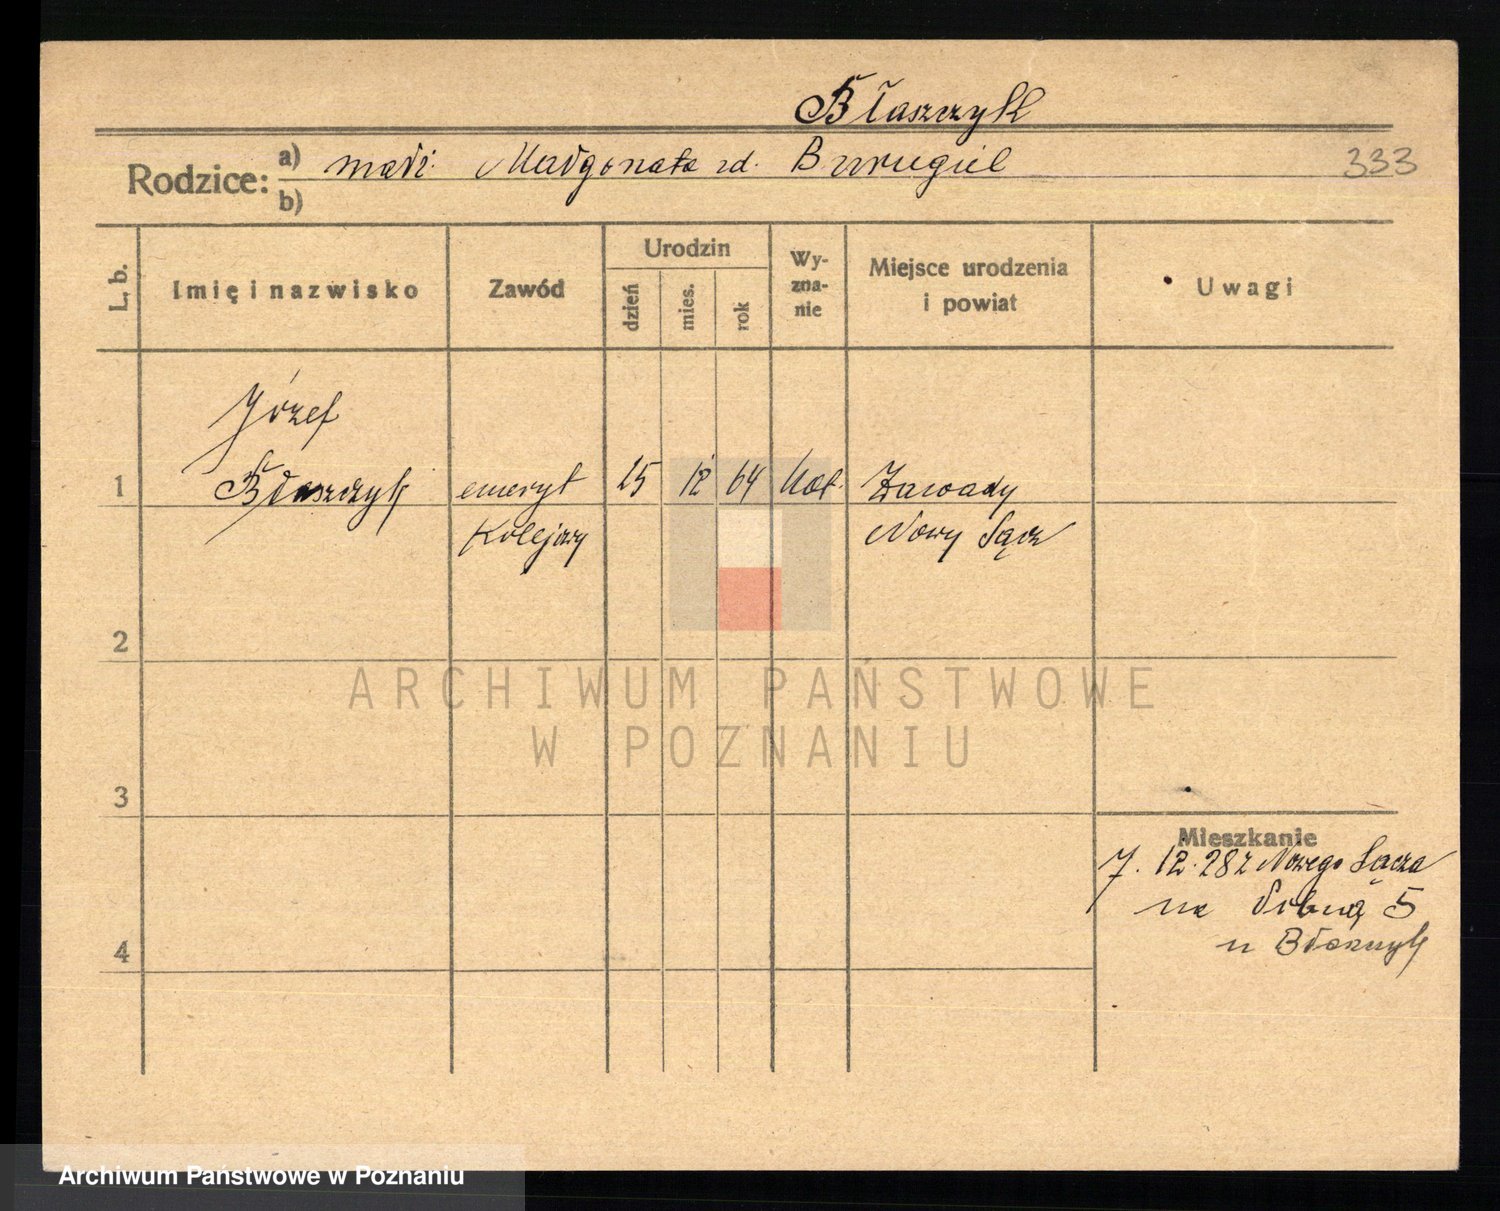 Błaszczyk
Rodzice: a) matż. Małgorzata zd. 333
b)
L. b.
Imię i nazwisko
Zawód
Urodzin
dzień
mies.
rok
Wy-
zna-
nie
Miejsce urodzenia
i powiat
Uwagi
Józef
1 Błaszczyk emeryt 15 12 64 kat. Zawady
Kolejowy Nowy Sącz
2
3
4
Mieszkanie
7. 12. 28 z Nowego Sącza
na 5
u Błaszczyk
ARCHIWUM PAŃSTWOWE
W POZNANIU
Archiwum Państwowe w Poznaniu